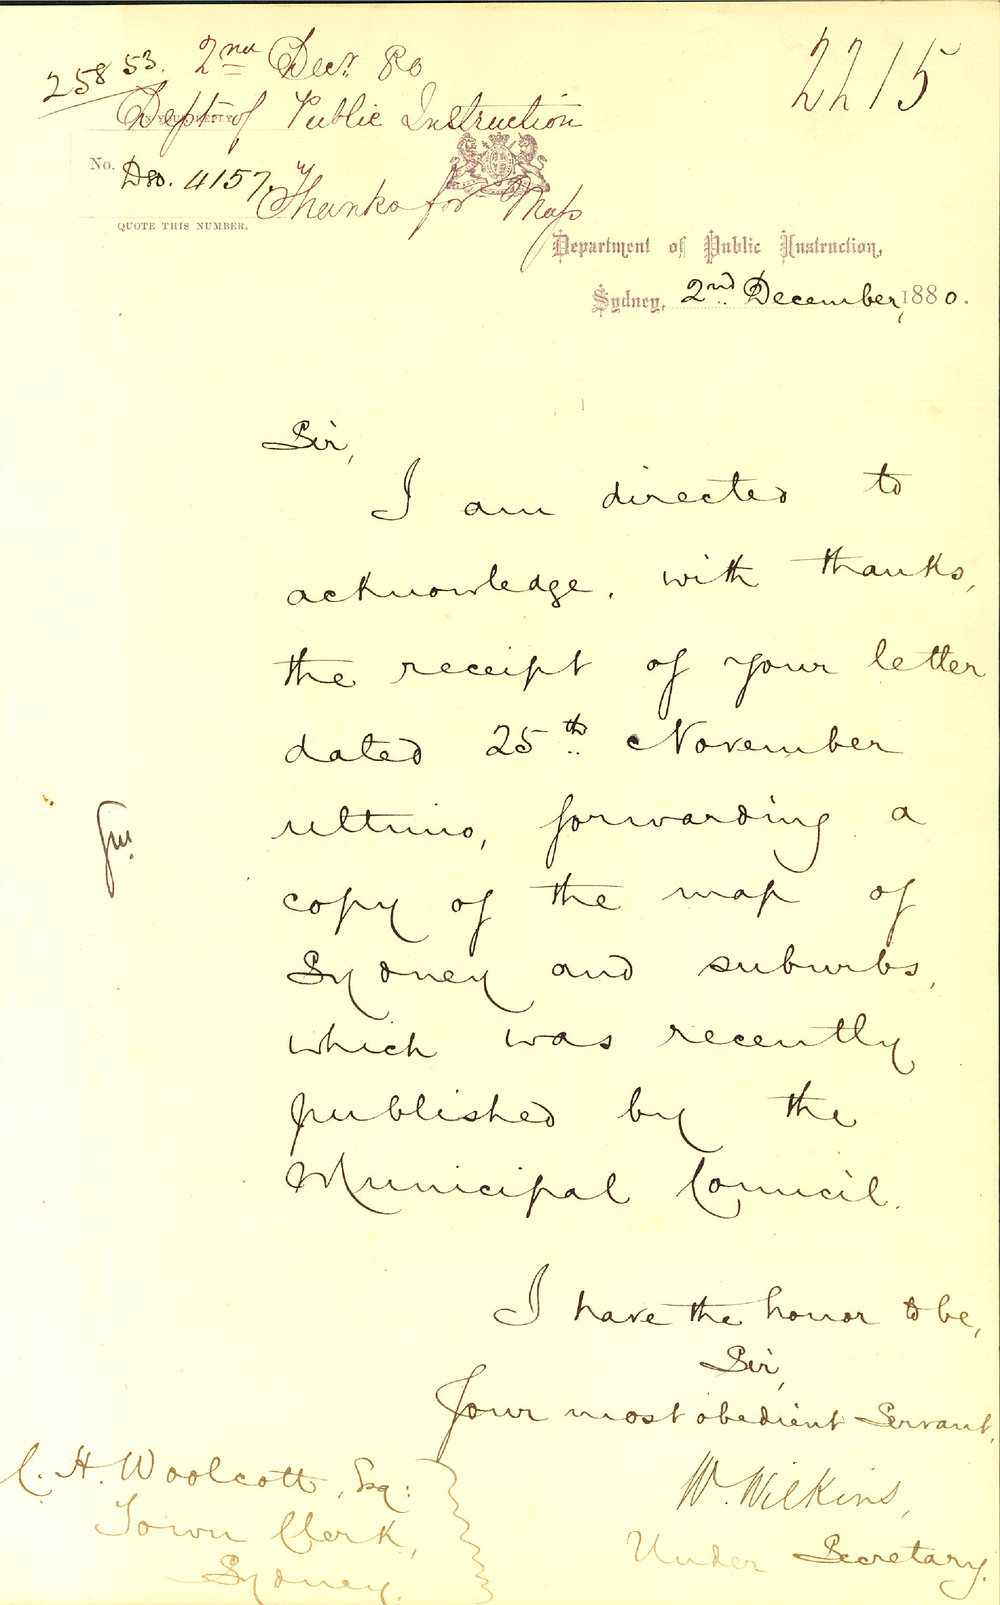 25853. 2nd Decr. 80
2215
Dept of Public Instruction
No. 80. 4157.
Thanks for Map
QUOTE THIS NUMBER.
Department of Public Instruction,
Sydney, 2nd December, 1880.
Sir,
I am directed to
acknowledge, with thanks,
the receipt of your letter
dated 25th November
ultimo, forwarding a
copy of the map of
Sydney and suburbs,
which was recently
published by the
Municipal Council.
I have the honor to be,
Sir,
Your most obedient Servant,
W. Wilkins,
Under Secretary.
C. H. Woolcott, Esq:
Town Clerk,
Sydney.